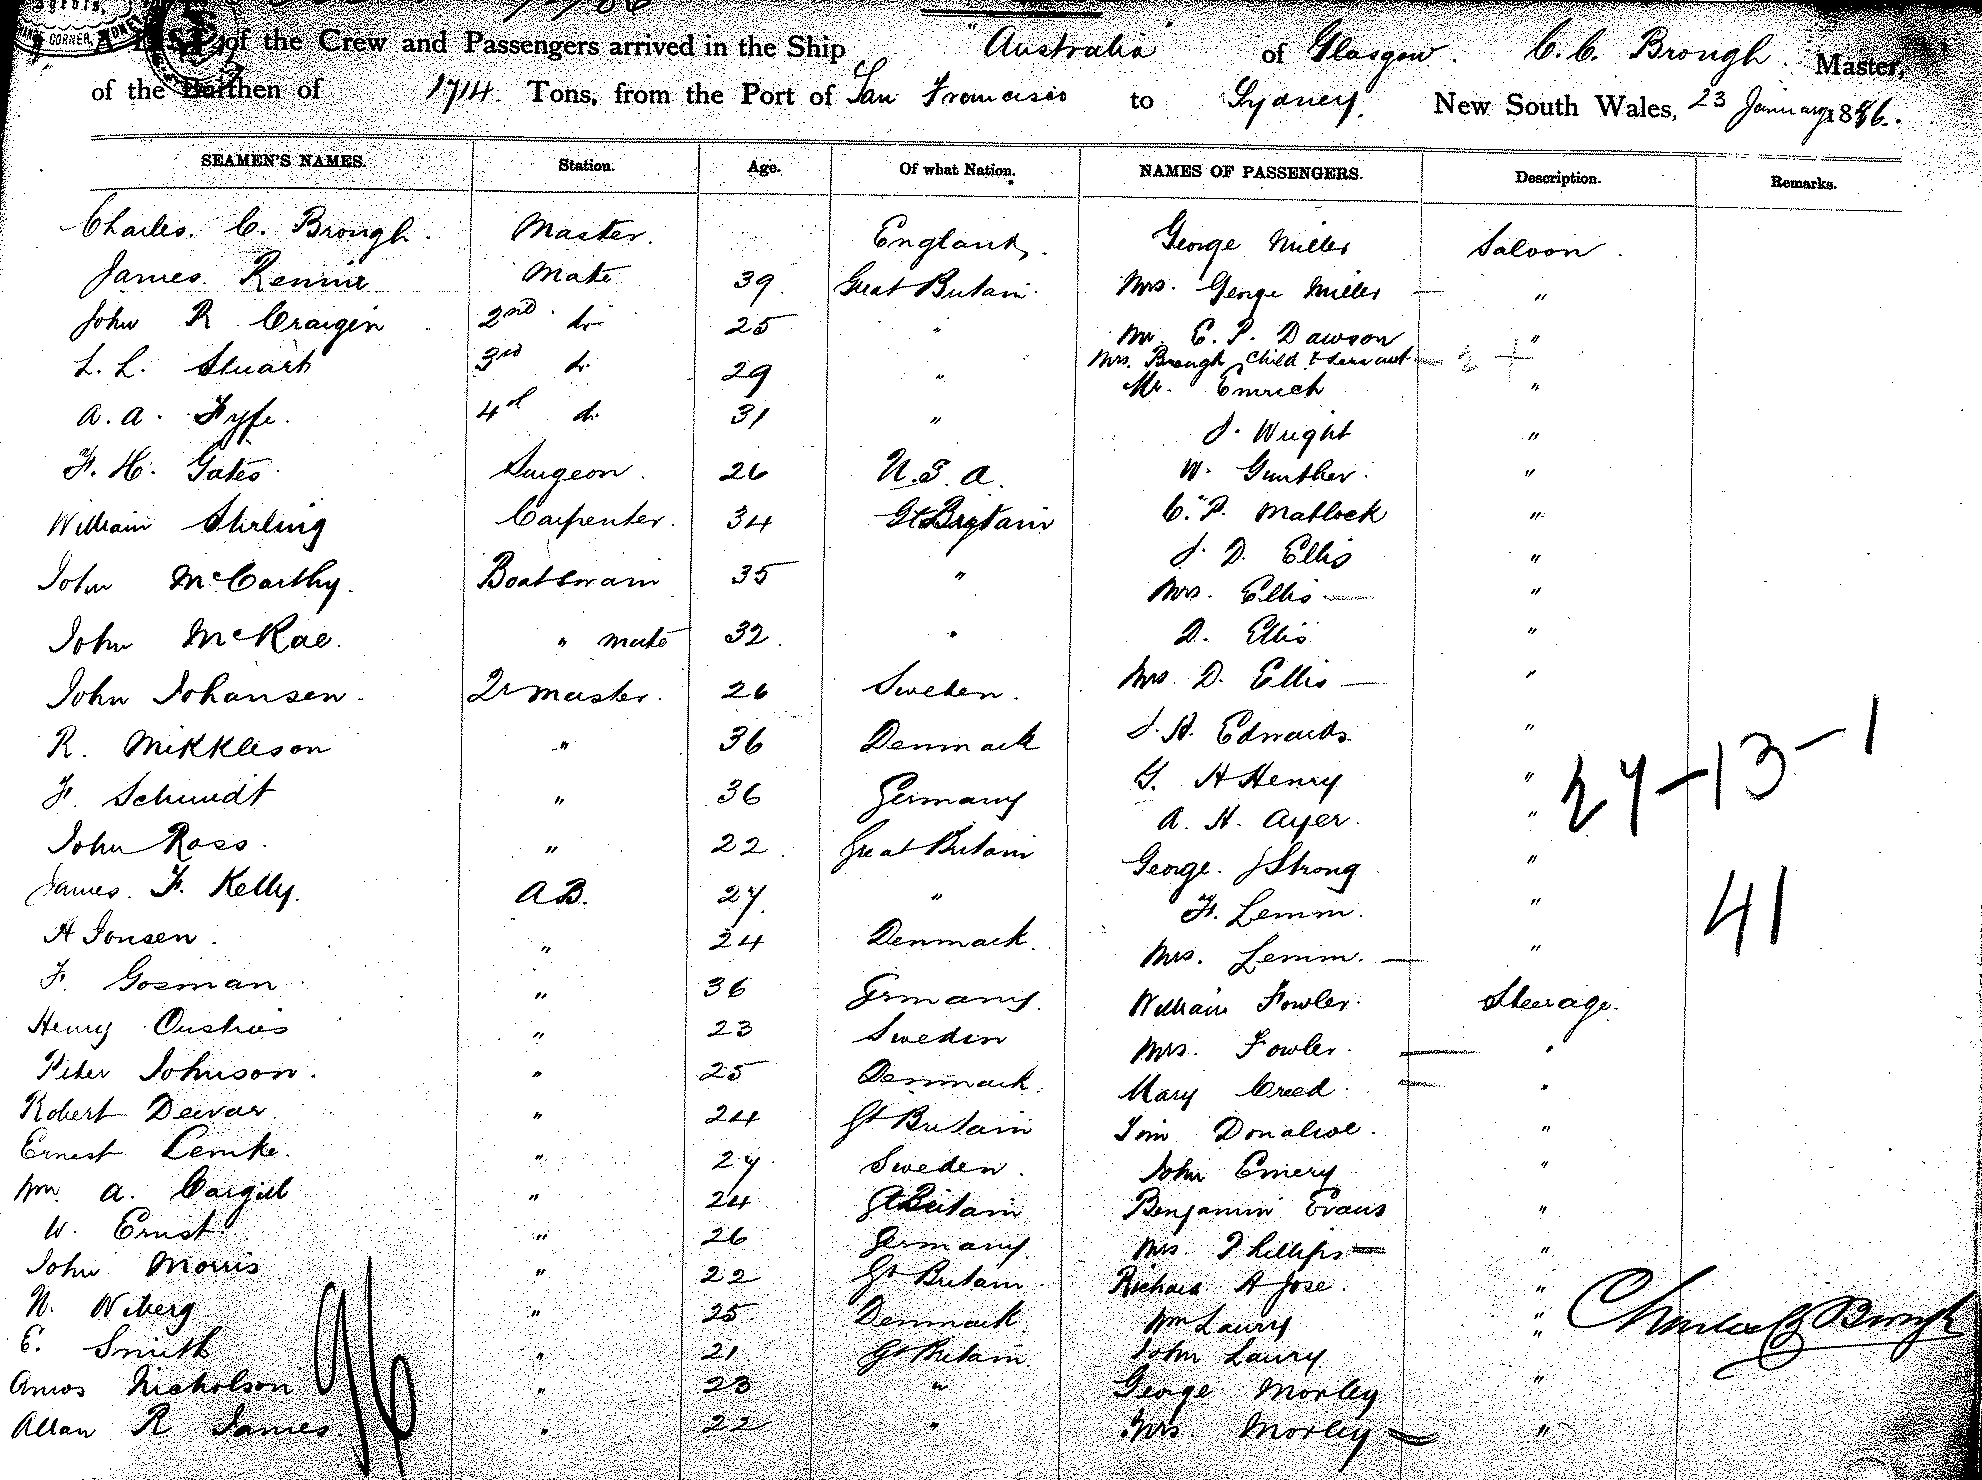 CORNER,
A LIST of the Crew and Passengers arrived in the Ship "Australia" of Glasgow. C. C. Brough. Master,
of the Burthen of 1714 Tons, from the Port of San Francisco to Sydney, New South Wales, 23 January 1886.
SEAMEN'S NAMES. Station. Age. Of what Nation. NAMES OF PASSENGERS. Description. Remarks.
Charles. C. Brough. Master. England. George Miller Saloon.
James Rennie Mate 39 Great Britain. Mrs. George Miller — "
John R Craigin 2nd do 25 " Mr E. P. Dawson "
L. L. Stuart 3rd do 29 " Mrs. Brough, Child & Servant — 2 +
Mr. Emrich "
A. A. Fyfe. 4th do 31 " J. Wright "
F. H. Gates. Surgeon. 26 U. S. A. W. Gunther. "
William Stirling Carpenter. 34 Gt Britain C. P. Matlock "
J. D. Ellis "
John McCarthy. Boatswain 35 " Mrs. Ellis — "
John McRae. " mate 32 " D. Ellis "
John Johansen. Qr master. 26 Sweden. Mrs D. Ellis — "
R. Mikkleson " 36 Denmark J. H. Edwards "
24-13-1
F. Schmidt " 36 Germany G. H Henry "
A. H. Ayer. "
John Ross. " 22 Great Britain George. J Strong "
James. F. Kelly. A.B. 27 " F. Lemm. "
41
A Jonsen. " 24 Denmark. Mrs. Lemm. — "
F. Gosman " 36 Germany. William Fowler. Steerage.
Henry " 23 Sweden Mrs. Fowler. — "
Peter Johnson. " 25 Denmark. Mary Creed — "
Robert Dewar. " 24 Gt Britain Tim Donahoe. "
Ernest Lemke. " 27 Sweden. John Emery "
Wm A. Cargill " 24 Gt Britain Benjamin Evans "
W. Ernst " 26 Germany. Mrs. Phillips — "
John Morris " 22 Gt Britain Richard A Jose. "
N. Wiberg " 25 Denmark. Wm Laury "
E. Smith " 21 Gt Britain John Laury "
Charles C Brough
Amos Nicholson " 23 " George Morley "
Allan R James. " 22 " Mrs. Morley — "
96